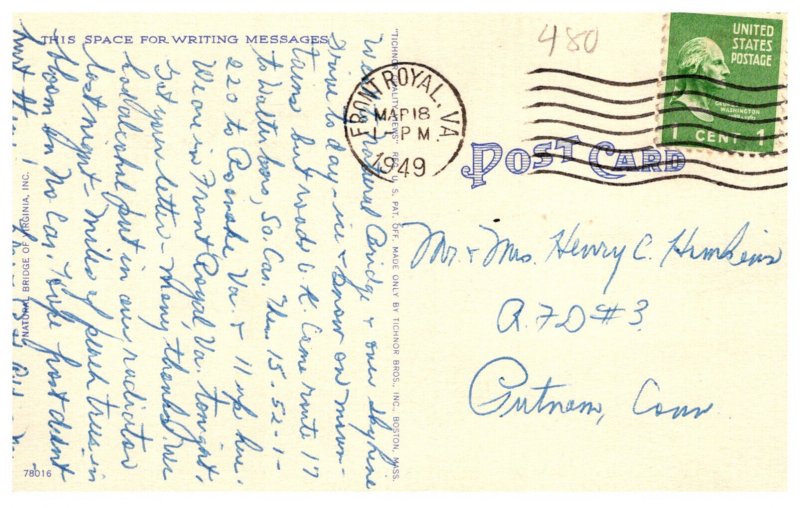 THIS SPACE FOR WRITING MESSAGES
Natural Bridge & over Skyline
Drive to day - ice & snow on moun-
tains but roads O.K. Came route 17
to Walterboro, So. Car. Then 15-52-1-
220 to Roanoke Va. & 11 up here.
We are in Front Royal, Va. tonight.
Got your letter - Many thanks. We
had Prestone put in our radiator
last night - Miles of peach trees in
bloom in No Car. Hope frost didn't
hurt
NATURAL BRIDGE OF VIRGINIA, INC.
78016
"TICHNOR QUALITY VIEWS," REG. U. S. PAT. OFF. MADE ONLY BY TICHNOR BROS., INC., BOSTON, MASS.
FRONT ROYAL, VA.
MAR 18
1-PM
1949
480
UNITED
STATES
POSTAGE
WASHINGTON
1 CENT 1
POST CARD
Mr. & Mrs. Henry C.
R.F.D #3
Putnam, Conn